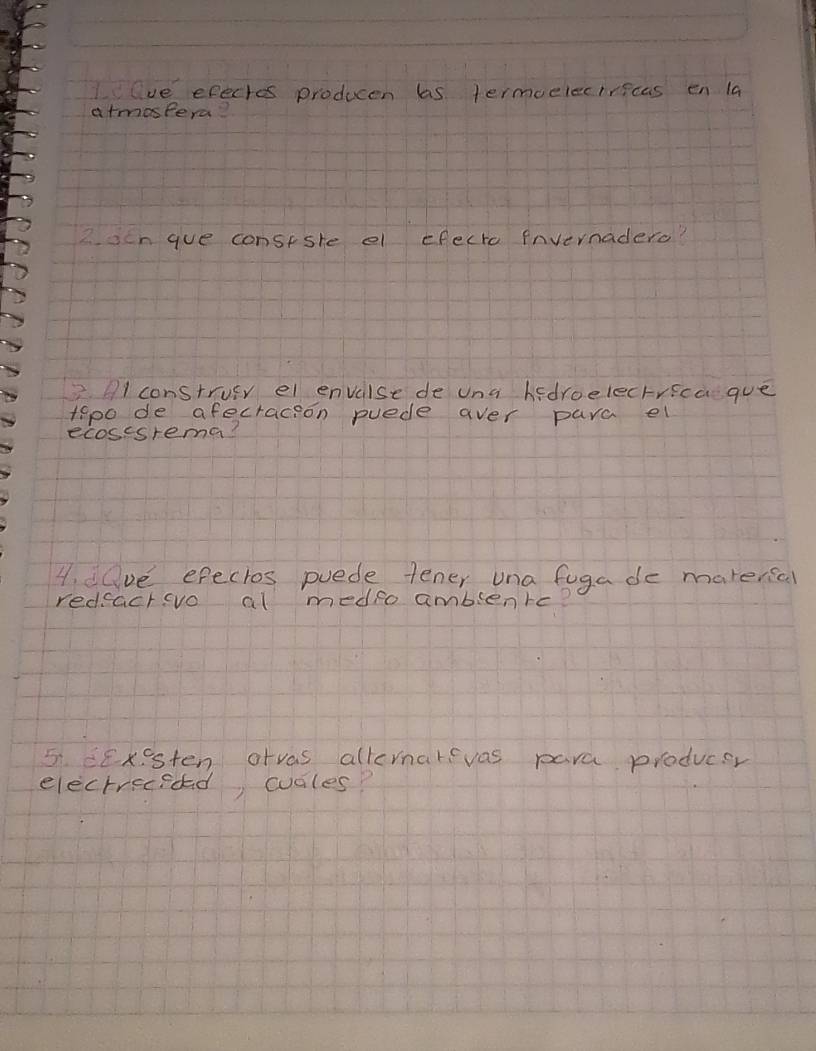 1. ¿Qué efectos producen las termoelectricas en la
atmosfera?
2. ¿En que consiste el efecto invernadero?
3. Al construir el envalse de una hidroelectrica que
tipo de afectación puede aver para el
ecosistema?
4. ¿Qué efectos puede tener una fuga de material
rediactivo al medio ambiente?
5. ¿Existen otras alternativas para producir
electrecidad, cuáles?